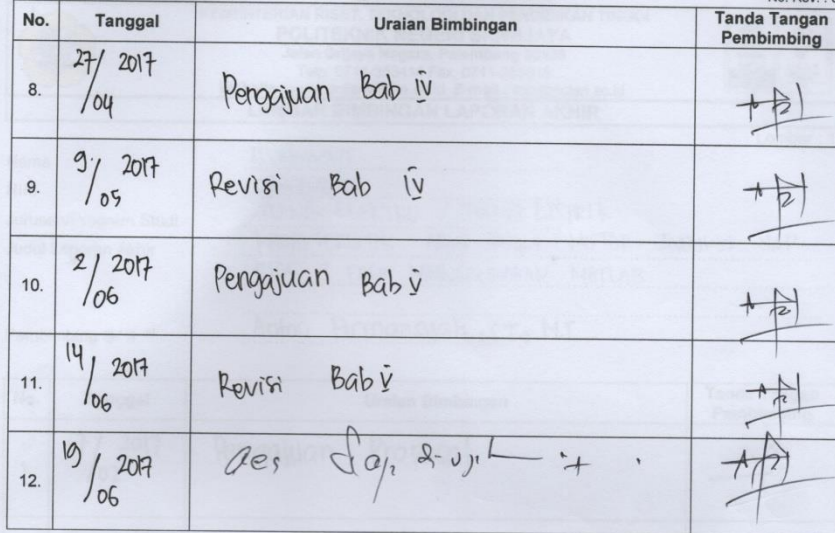 No. Tanggal Uraian Bimbingan Tanda Tangan
Pembimbing
8. 27/04 2017 Pengajuan Bab iv
9. 9/05 2017 Revisi Bab iv
10. 2/06 2017 Pengajuan Bab v
11. 14/06 2017 Revisi Bab v
12. 19/06 2017